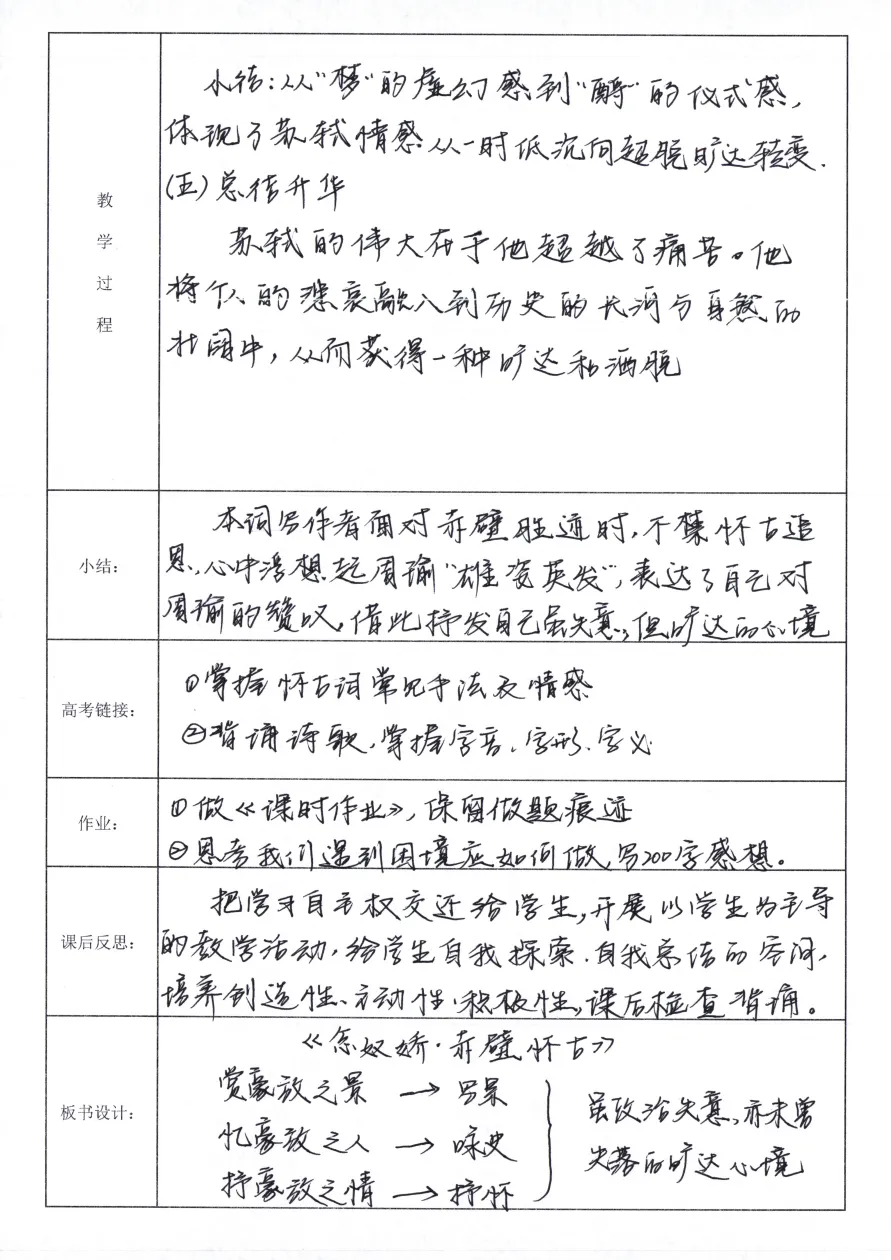 教学过程
小结：从“梦”的虚幻感到“酹”的仪式感，
体现了苏轼情感从一时低沉向超脱旷达转变.
(五)总结升华
苏轼的伟大在于他超越了痛苦。他
将个人的悲哀融入到历史的长河与自然的
壮阔中，从而获得一种旷达和洒脱
小结：
本词写作者面对赤壁胜迹时，不禁怀古追
思，心中浮想起周瑜“雄姿英发”，表达了自己对
周瑜的赞叹，借此抒发自己虽失意，但旷达的心境
高考链接：
①掌握怀古词常见手法及情感
②背诵诗歌，掌握字音、字形、字义
作业：
①做《课时作业》，保留做题痕迹
②思考我们遇到困境应如何做，写200字感想。
课后反思：
把学习自主权交还给学生，开展以学生为主导
的教学活动，给学生自我探索、自我总结的空间，
培养创造性、主动性、积极性，课后检查背诵。
板书设计：
《念奴娇·赤壁怀古》
赏豪放之景 → 写景
忆豪放之人 → 咏史
抒豪放之情 → 抒怀
虽政治失意，亦未曾
失落的旷达心境